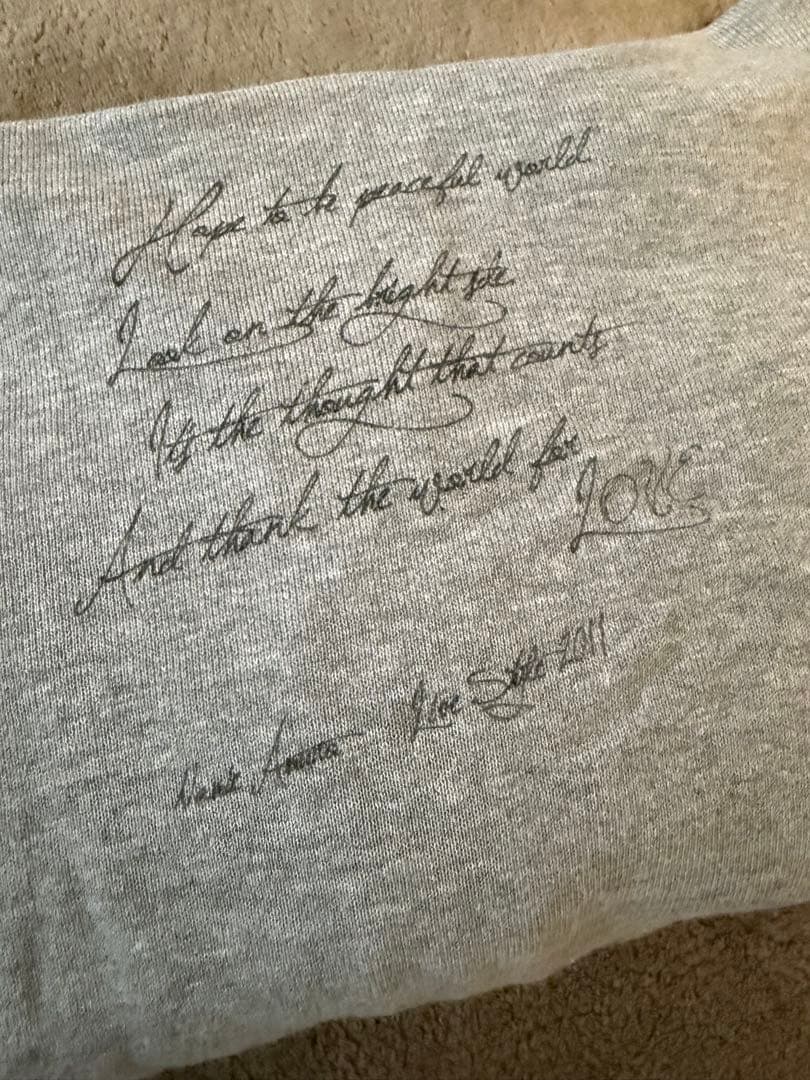 Hope to be peaceful world
Look on the bright side
It's the thought that counts
And thank the world for
LOVE
Love Style 2011